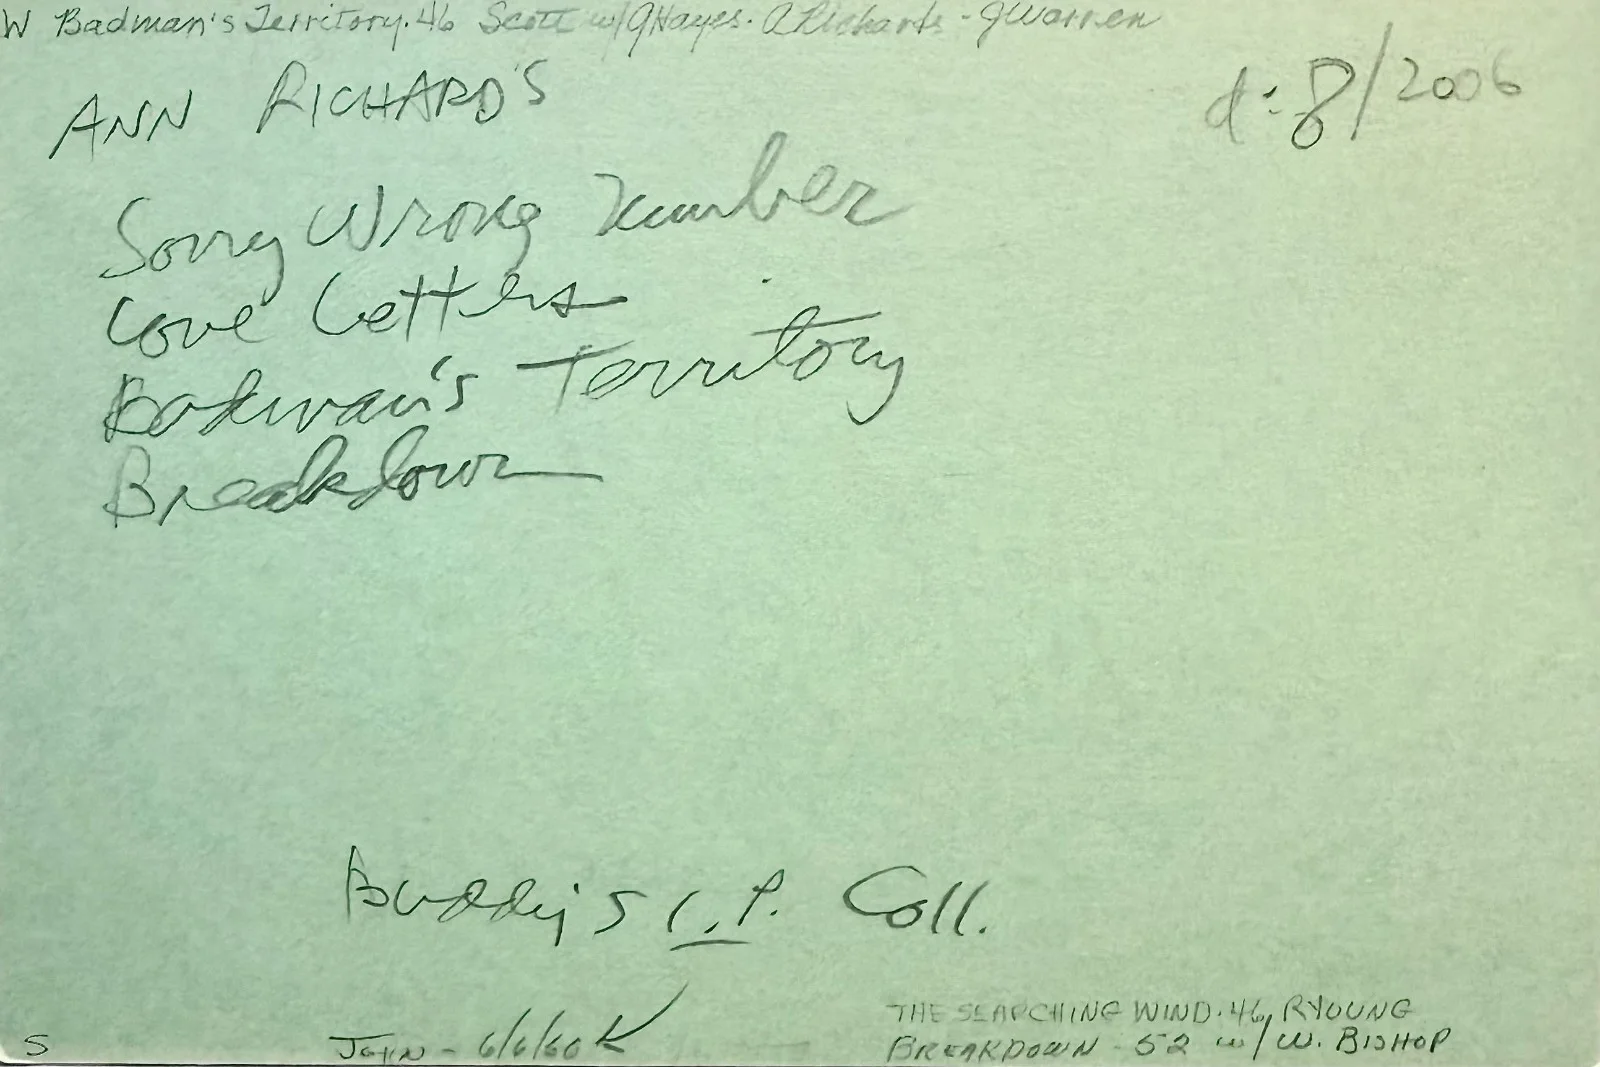 W Badman's Territory. 46 Scott w/GHayes. A Richards - JWarren
ANN RICHARD'S
d: 8/2006
Sorry Wrong Number
Love Letters
Badman's Territory
Breakdown
Buddy's C.P. Coll.
THE SEARCHING WIND. 46, RYOUNG
BREAKDOWN - 52 w/ W. BISHOP
JOHN - 6/6/60 K
S